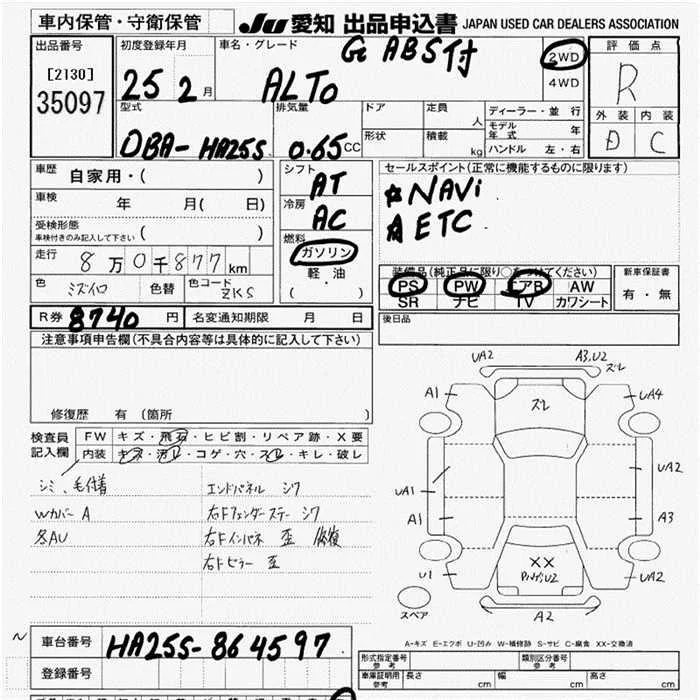 車内保管・守衛保管 JU 愛知 出品申込書 JAPAN USED CAR DEALERS ASSOCIATION
出品番号 初度登録年月 車名・グレード G ABS付 2WD 評価点
[2130] 25 2 月 ALTO 4WD R
35097 型式 排気量 ドア 定員 人 ディーラー・並行 外装 内装
モデル年式 年
DBA-HA25S 0.65 CC 形状 積載 kg ハンドル 左・右 D C
車歴 自家用・( ) シフト AT セールスポイント(正常に機能するものに限ります)
車検 年 月( 日) 冷房 AC ☆NAVi
受検形態 ☆ETC
車検付きのみ記入して下さい ( ) 燃料
走行 8万0千877km ガソリン 装備品(純正品に限り○をつけてください) 新車保証書
色 ミズイロ 色替 色コード ZKS 軽・油 PS PW エアB AW 有・無
( ・ ) SR ナビ TV カワシート
R券 8740 円 名変通知期限 月 日 後日品
注意事項申告欄(不具合内容等は具体的に記入して下さい)
修復歴 有 (箇所 )
検査員 FW キズ・飛石・ヒビ割・リペア跡・X要
記入欄 内装 キズ・汚レ・コゲ・穴・スレ・キレ・破レ
シミ、毛付着 エンドパネル シワ
Wカバー A 右Fフェンダーステー シワ
各AU 右Fインパネ 歪 修復
右Fピラー 歪
UA2 A3,U2
ズレ
A1 ズレ UA4
UA1 UA2
A1 A3
U1 XX UA2
スペア A2
A-キズ E-エクボ U-凹み W-補修跡 S-サビ C-腐食 XX-交換済
車台番号 HA25S-864597
登録番号
形式指定番号 参考 類別区分番号 参考
車庫証明用 参考 長さ cm 幅 cm 高さ cm